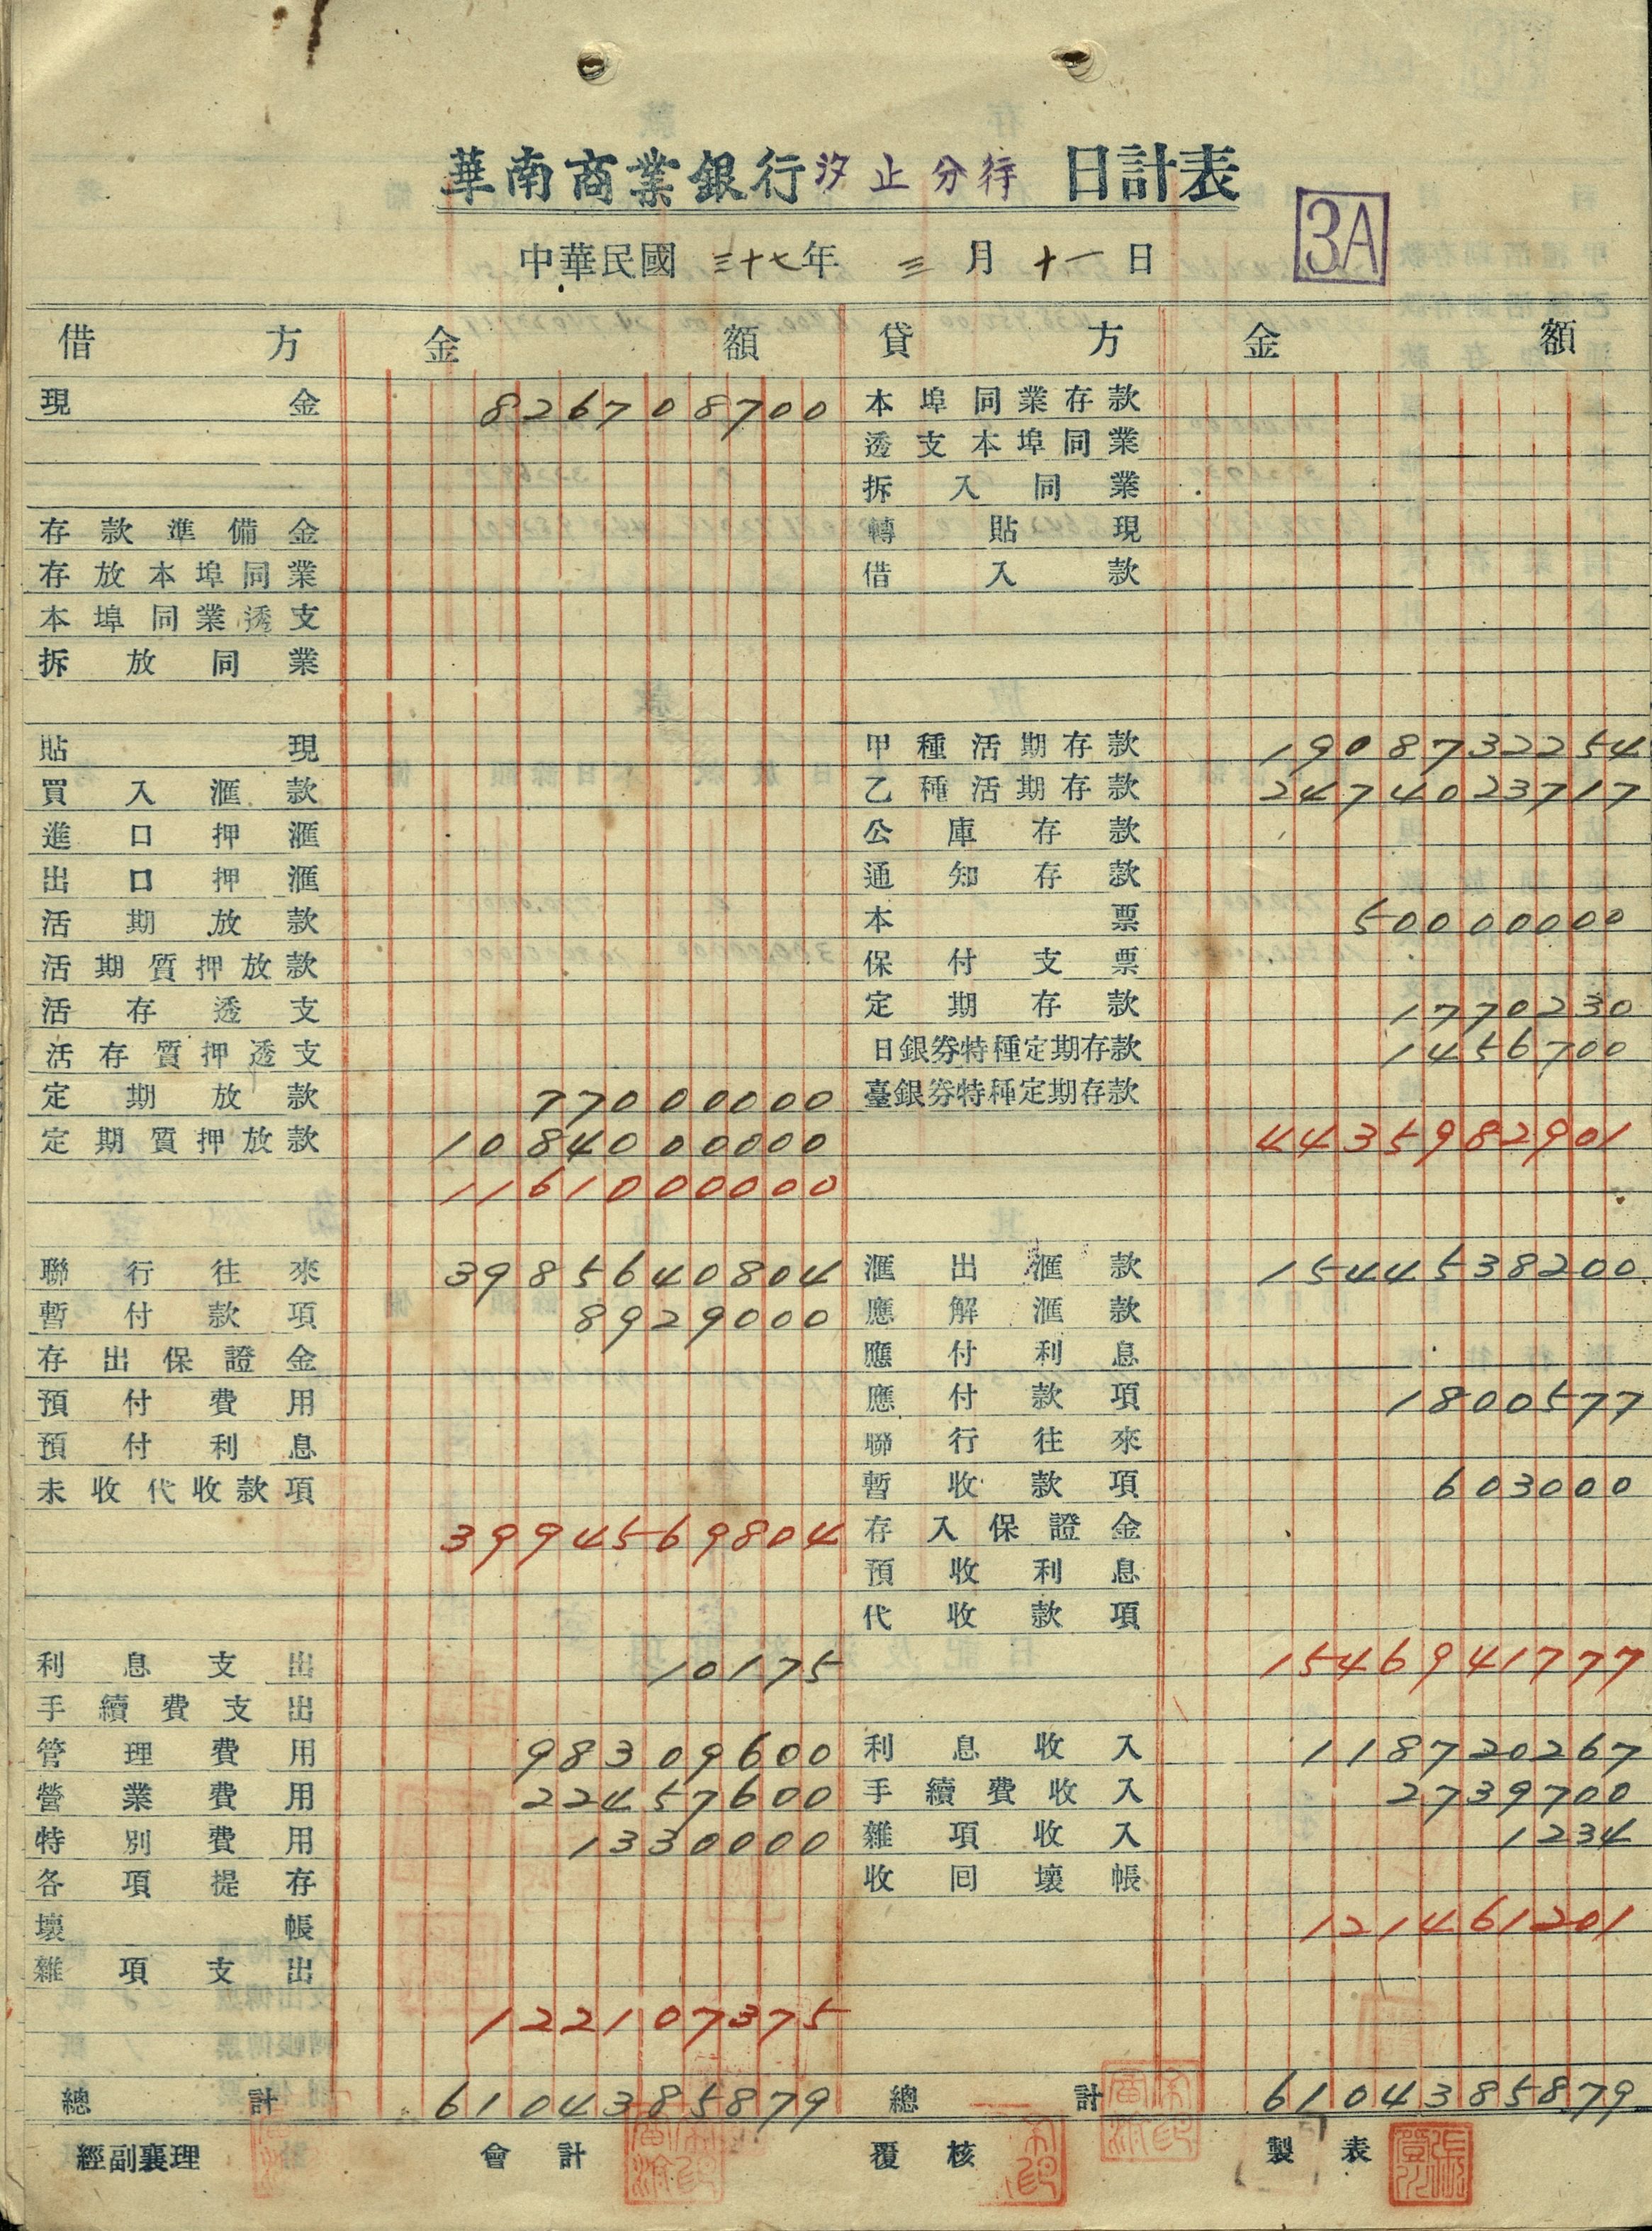 華南商業銀行汐止分行 日計表
3A
中華民國 三十七年 三月十一日
借方 金額 貸方 金額
現金 826708700 本埠同業存款
透支本埠同業
拆入同業
存款準備金 轉貼現
存放本埠同業 借入款
本埠同業透支
拆放同業
貼現 甲種活期存款 1908732254
買入滙款 乙種活期存款 2474023717
進口押滙 公庫存款
出口押滙 通知存款
活期放款 本票 50000000
活期質押放款 保付支票
活存透支 定期存款 1770230
活存質押透支 日銀券特種定期存款 1456700
定期放款 77000000 臺銀券特種定期存款
定期質押放款 1084000000 4435982901
1161000000
聯行往來 3985640804 滙出滙款 1544538200
暫付款項 8929000 應解滙款
存出保證金 應付利息
預付費用 應付款項 1800577
預付利息 聯行往來
未收代收款項 暫收款項 603000
3994569804 存入保證金
預收利息
代收款項
利息支出 10175 1546941777
手續費支出
管理費用 98309600 利息收入 118720267
營業費用 22457600 手續費收入 2739700
特別費用 1330000 雜項收入 1234
各項提存 收回壞帳
壞帳 121461201
雜項支出
122107375
總計 6104385879 總計 6104385879
經副襄理 會計 覆核 製表